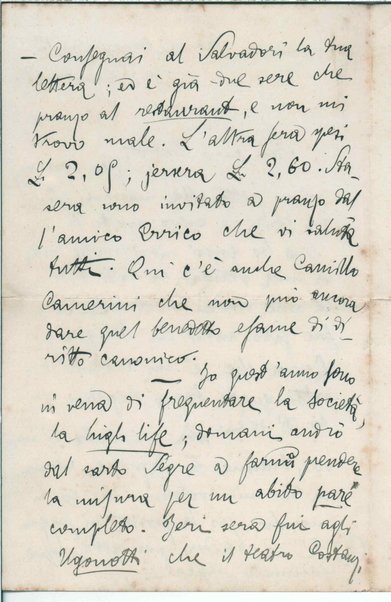 – Consegnai al Salvadori la tua
lettera; ed è già due sere che
pranzo al restaurant, e non mi
trovo male. L'altra sera spesi
£ 2,05; jersera £ 2,60. Sta-
sera sono invitato a pranzo dal
l'amico Errico che vi saluta
tutti. Qui c'è anche Camillo
Camerini che non può ancora
dare quel benedetto esame di di
ritto canonico.
– Io quest'anno sono
in vena di frequentare la società,
la high life; domani andrò
dal sarto Segre a farmi prendere
la misura per un abito
completo. Ieri sera fui agli
Ugonotti che il teatro Costanzi,